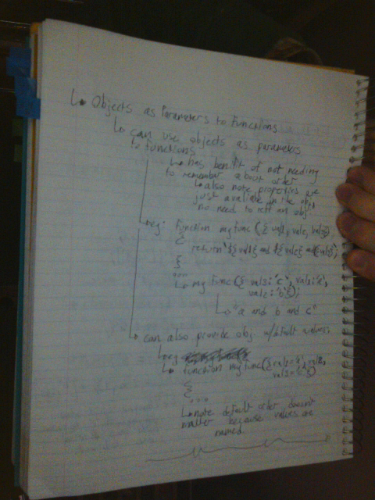 ↳ Objects as Parameters to Functions
↳ can use objects as parameters
to functions
↳ has benefit of not needing
to remember about order
↳ also note properties are
just available in the
no need to ref obj
eg: function myfunc ({ val1, val2, val3})
{
return `${val1} and ${val2} and ${val3}`;
}
...
↳ myfunc({ val2: 'c',
'b'});
↳ "a and b and c"
can also provide obj w/default values
↳ eg
function myfunc({
{
}
...
↳ note default order doesn't
matter because values are
named